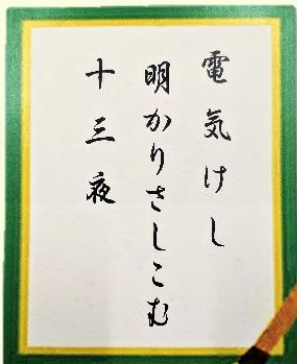 電気けし
明かりさしこむ
十三夜